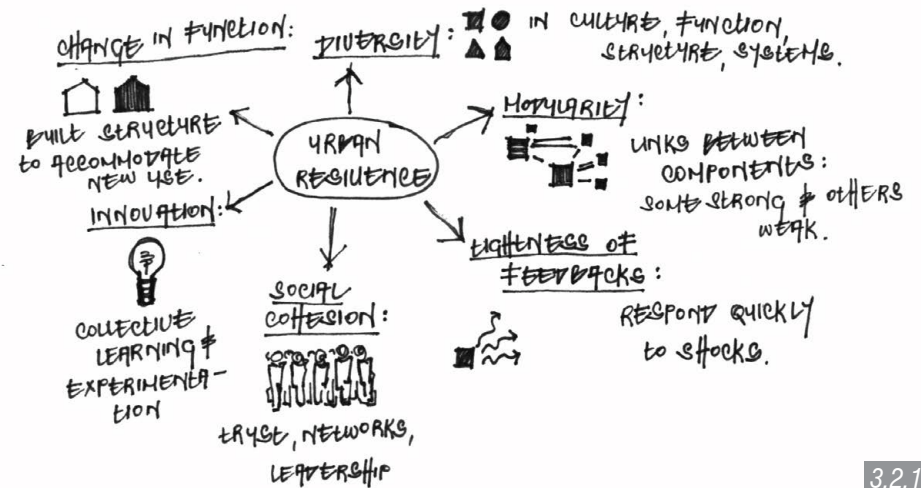 CHANGE IN FUNCTION:
BUILT STRUCTURE
TO ACCOMMODATE
NEW USE.
DIVERSITY:
IN CULTURE, FUNCTION,
STRUCTURE, SYSTEMS.
URBAN
RESILIENCE
MODULARITY:
LINKS BETWEEN
COMPONENTS:
SOME STRONG & OTHERS
WEAK.
INNOVATION:
COLLECTIVE
LEARNING &
EXPERIMENTA-
TION
SOCIAL
COHESION:
TRUST, NETWORKS,
LEADERSHIP
TIGHTNESS OF
FEEDBACKS:
RESPOND QUICKLY
TO SHOCKS.
3.2.1